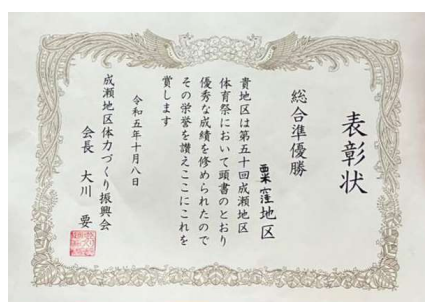 表彰状
総合準優勝
栗窪地区
貴地区は第五十回成瀬地区
体育祭において頭書のとおり
優秀な成績を修められたので
その栄誉を讃えここにこれを
賞します
令和五年十月八日
成瀬地区体力づくり振興会
会長 大川 要